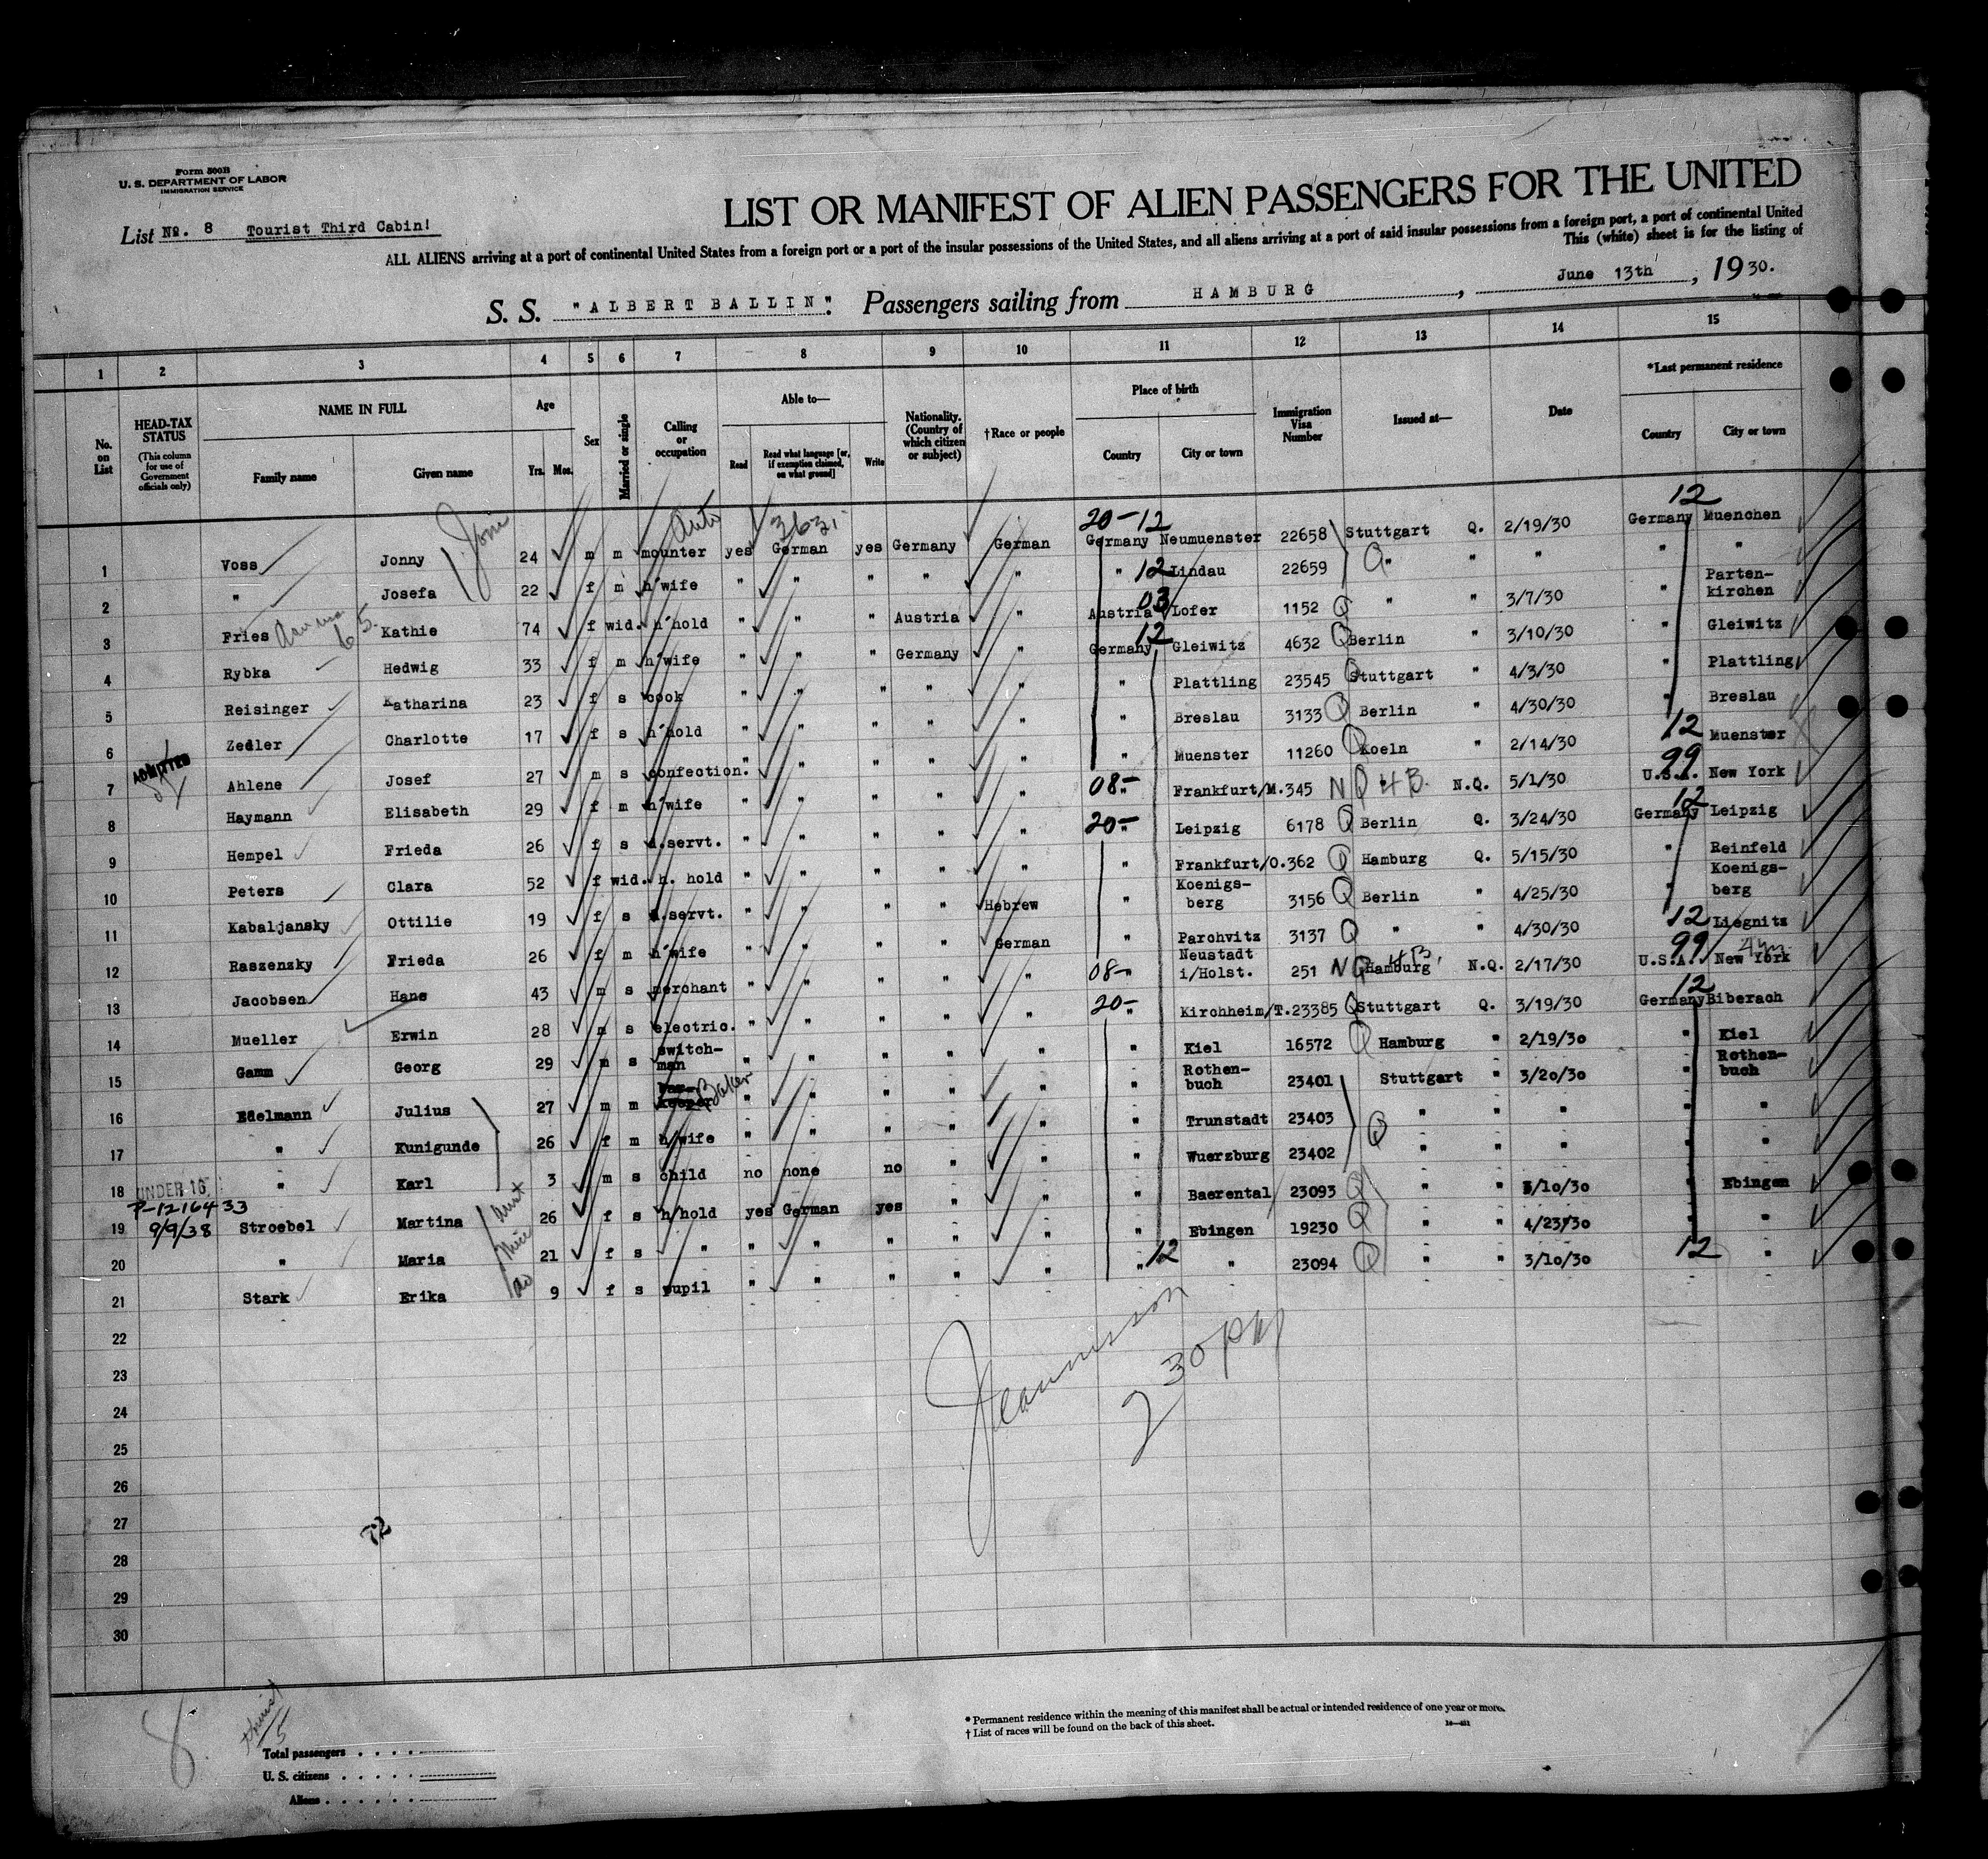 Form 500B
U. S. DEPARTMENT OF LABOR
IMMIGRATION SERVICE
List No. 8 Tourist Third Cabin!
LIST OR MANIFEST OF ALIEN PASSENGERS FOR THE UNITED
ALL ALIENS arriving at a port of continental United States from a foreign port or a port of the insular possessions of the United States, and all aliens arriving at a port of said insular possessions from a foreign port, a port of continental United
This (white) sheet is for the listing of
S. S. "ALBERT BALLIN". Passengers sailing from HAMBURG, June 13th, 1930.
1 2 3 4 5 6 7 8 9 10 11 12 13 14 15
No. on List
HEAD-TAX STATUS (This column for use of Government officials only)
NAME IN FULL Family name Given name
Age Yrs. Mos.
Sex
Married or single
Calling or occupation
Able to— Read Read what language [or, if exemption claimed, on what ground] Write
Nationality. (Country of which citizen or subject)
†Race or people
Place of birth Country City or town
Immigration Visa Number
Issued at—
Date
*Last permanent residence Country City or town
Auto 20-12 12
1 Voss Jonny 24 m m mounter yes German yes Germany German Germany Neumuenster 22658 Stuttgart Q. 2/19/30 Germany Muenchen
2 " Josefa 22 f m h'wife " " " " " " 12 Lindau 22659 Q " " " " "
3 Fries Kathie 74 f wid. h'hold " " " Austria " Austria 03 Lofer 1152 Q " " 3/7/30 " Partenkirchen
4 Rybka Hedwig 33 f m h'wife " " " Germany " Germany 12 Gleiwitz 4632 Q Berlin " 3/10/30 " Gleiwitz
5 Reisinger Katharina 23 f s cook " " " " " " Plattling 23545 Q Stuttgart " 4/3/30 " Plattling
6 Zedler Charlotte 17 f s h'hold " " " " " " Breslau 3133 Q Berlin " 4/30/30 " Breslau
7 ADMITTED Ahlene Josef 27 m s confection. " " " " " " Muenster 11260 Q Koeln " 2/14/30 12 Muenster
8 Haymann Elisabeth 29 f m h'wife " " " " " 08- " Frankfurt/M. 345 N Q HB. N.Q. 5/1/30 99 U.S.A. New York
9 Hempel Frieda 26 f s d.servt. " " " " " 20- " Leipzig 6178 Q Berlin Q. 3/24/30 12 Germany Leipzig
10 Peters Clara 52 f wid. h. hold " " " " " " Frankfurt/O. 362 Q Hamburg Q. 5/15/30 " Reinfeld
11 Kabaljansky Ottilie 19 f s d.servt. " " " " Hebrew " Koenigsberg 3156 Q Berlin " 4/25/30 " Koenigsberg
12 Raszenzky Frieda 26 f m h'wife " " " " German " Parchvitz 3137 Q " " 4/30/30 12 Liegnitz
13 Jacobsen Hans 43 m s merchant " " " " " 08- " Neustadt i/Holst. 251 NQ HB. Hamburg N.Q. 2/17/30 99 U.S.A. New York
14 Mueller Erwin 28 m s electric. " " " " " 20- " Kirchheim/T. 23385 Q Stuttgart Q. 3/19/30 12 Germany Biberach
15 Gamm Georg 29 m s switchman " " " " " " Kiel 16572 Q Hamburg " 2/19/30 " Kiel
16 Edelmann Julius 27 m m Baker " " " " " " Rothenbuch 23401 Stuttgart " 3/20/30 " Rothenbuch
17 " Kunigunde 26 f m h'wife " " " " " " Trunstadt 23403 Q " " " " "
18 UNDER 16 " Karl 3 m s child no none no " " " Wuerzburg 23402 " " " " "
P-1216433
19 9/9/38 Stroebel Martina 26 f s h'hold yes German yes " " " Baerental 23093 Q " " 3/10/30 " Ebingen
20 " Maria 21 f s " " " " " " " Ebingen 19230 Q " " 4/23/30 " "
21 Stark Erika 9 f s pupil " " " " " " 12 " 23094 Q " " 3/10/30 12 "
22
23
2 30 PM
24
25
26
27
28
29
30
8.
5
Total passengers
U. S. citizens
Aliens
* Permanent residence within the meaning of this manifest shall be actual or intended residence of one year or more.
† List of races will be found on the back of this sheet.